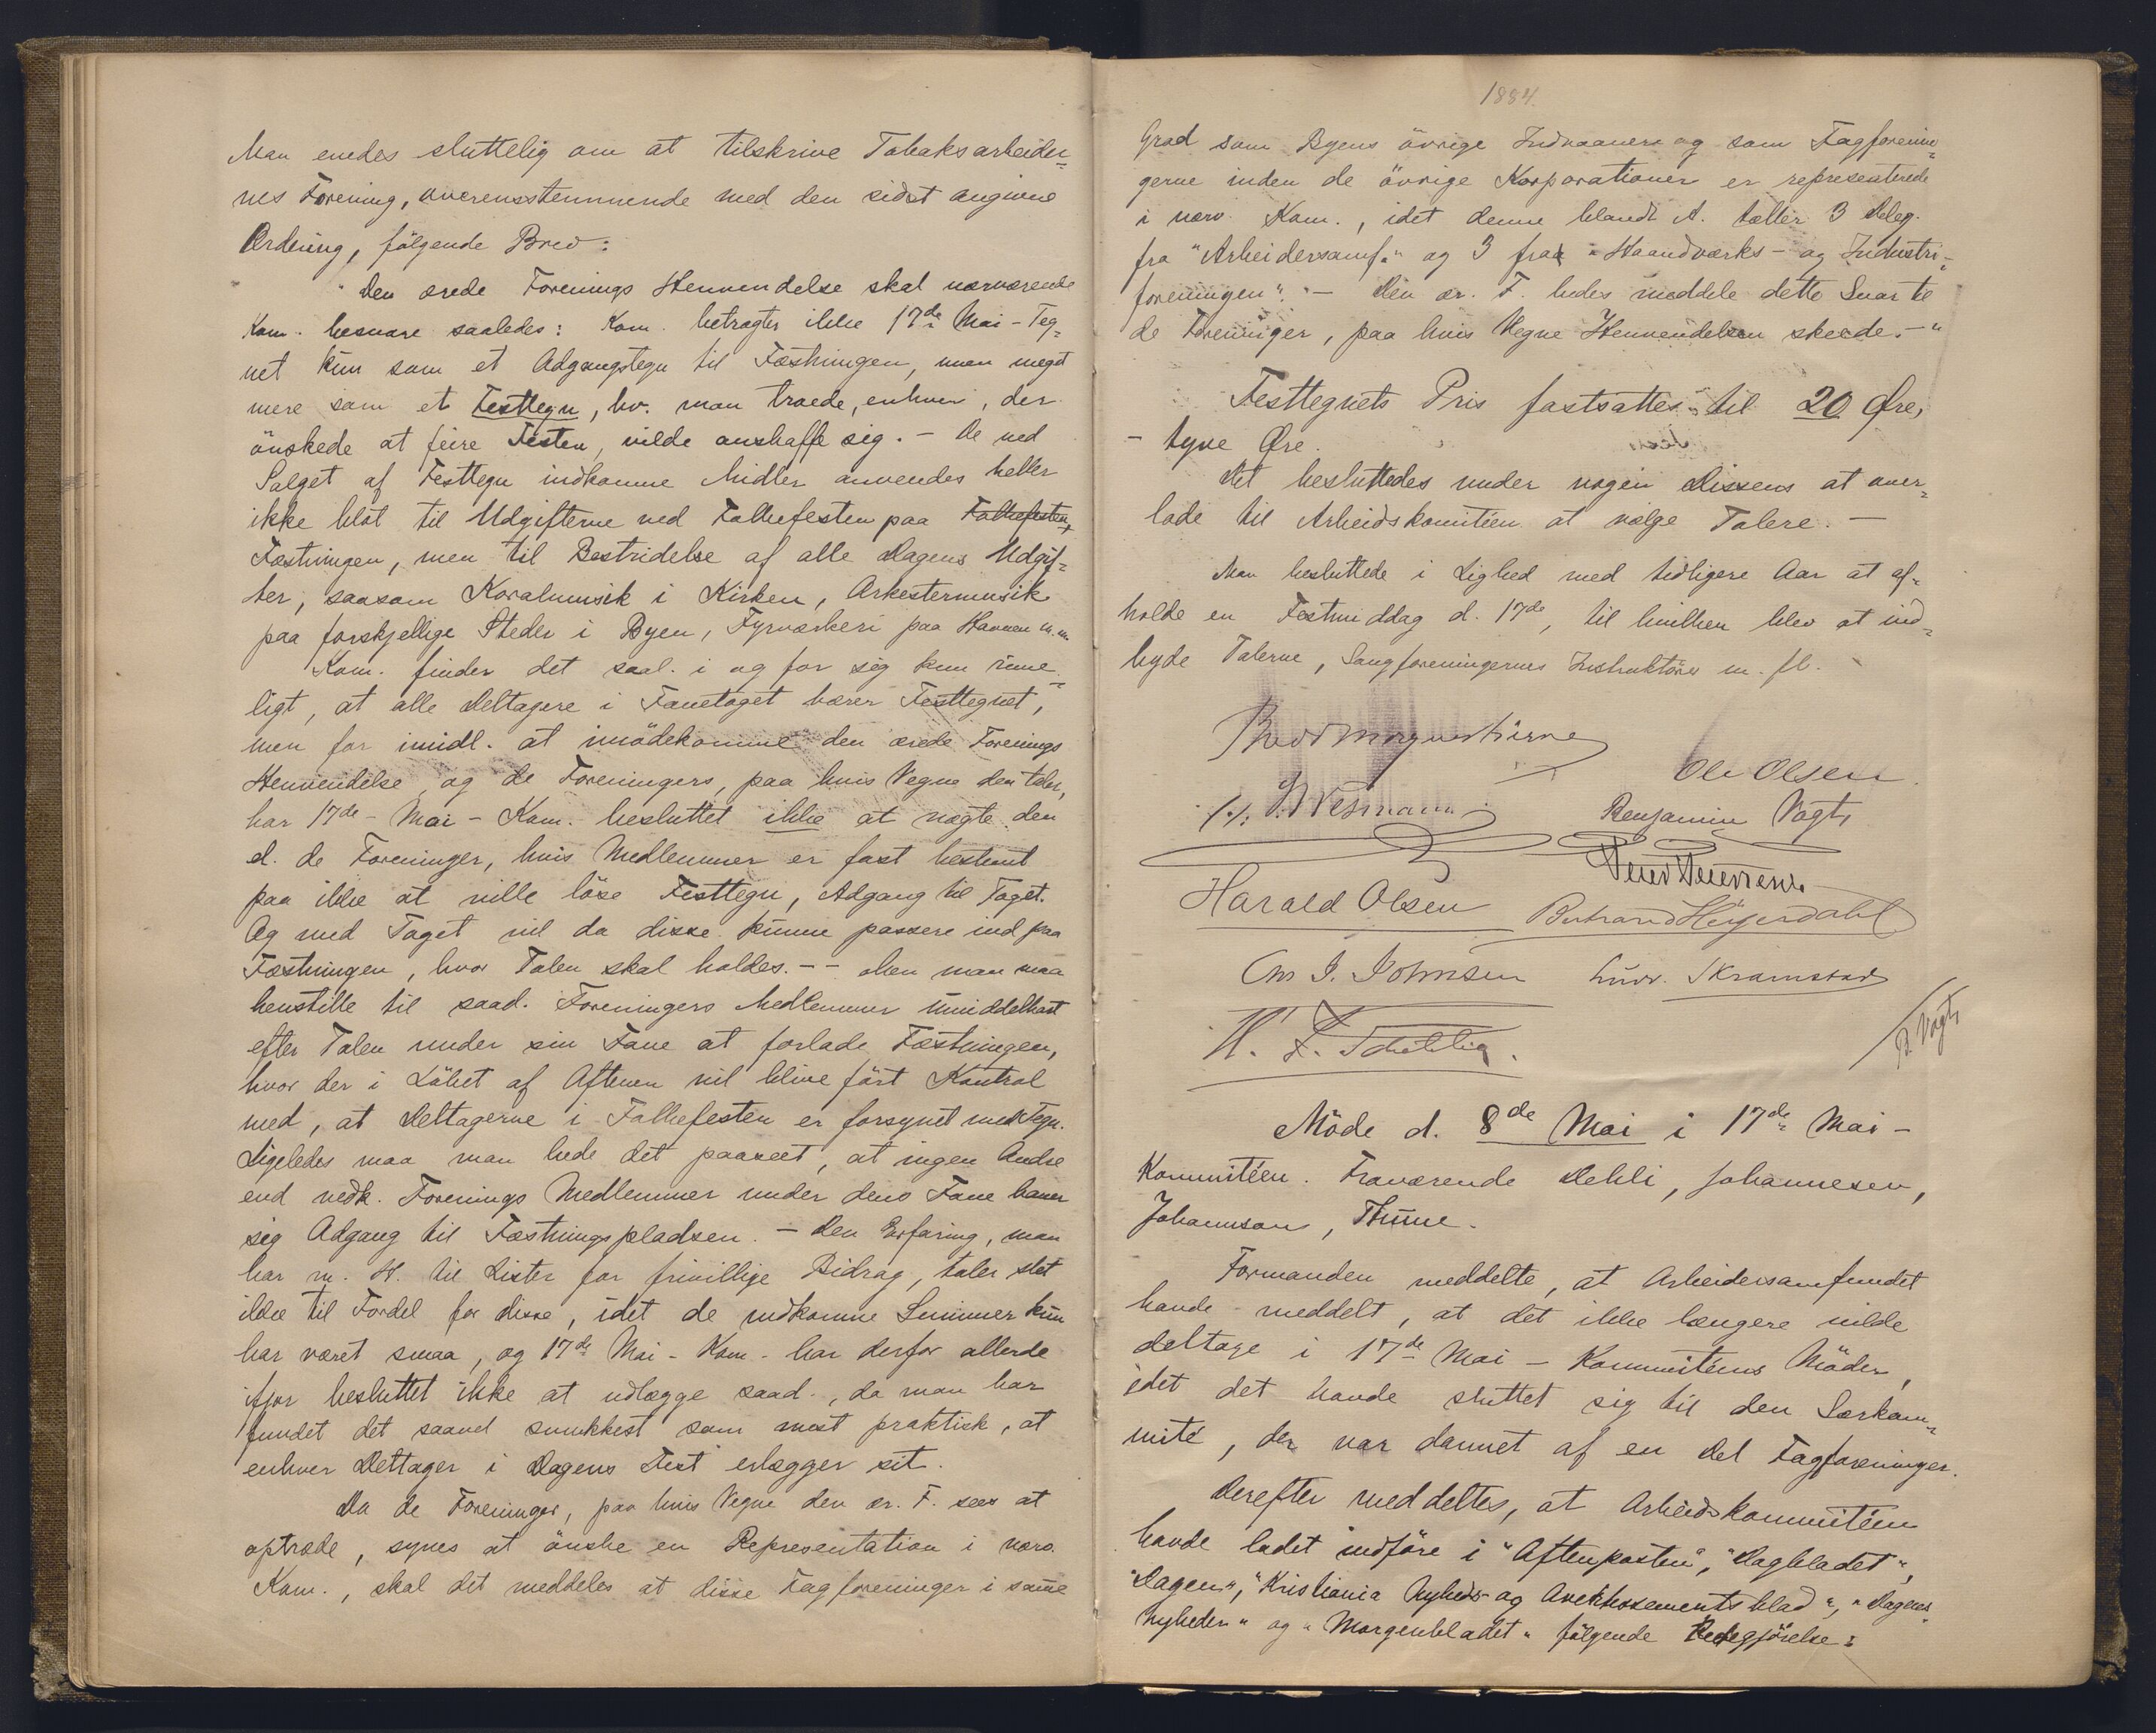 Man enedes sluttelig om at tilskrive Tobaksarbeider=
nes Forening, overensstemmende med den sidst angivne
Ordning, følgende Brev:
"Den ærede Forenings Henvendelse skal nærværende
Kom. besvare saaledes: Kom. betragter ikke 17de Mai-Teg=
net kun som et Adgangstegn til Fæstningen, men meget
mere som et Festtegn, hv. man troede, enhver, der
önskede at feire Festen, vilde anskaffe sig. - De ved
Salget af Festtegn indkomne Midler anvendes heller
ikke blot til Udgifterne ved Folkefesten paa Folkefesten,
Fæstningen, men til Bestridelse af alle Dagens Udgif=
ter, saasom Koralmusik i Kirken, Orkestermusik
paa forskjellige Steder i Byen, Fyrværkeri paa Havnen m.m.
Kom. finder det saal. i og for sig kun rime=
ligt, at alle Deltagere i Fanetoget bærer Festtegnet,
men for imidl. at imödekomme den ærede Forenings
Henvendelse og de Foreningers, paa hvis Vegne den taler,
har 17de-Mai-Kom. besluttet ikke at nægte den
el. de Foreninger, hvis Medlemmer er fast bestemt
paa ikke at ville löse Festtegn, Adgang til Toget.
Og med Toget vil da disse kunne passere ind paa
Fæstningen, hvor Talen skal holdes. -- Men man maa
henstille til saad. Foreningers Medlemmer umiddelbart
efter Talen under sin Fane at forlade Fæstningen,
hvor der i Löbet af Aftenen vil blive fört Kontrol
med, at Deltagerne i Folkefesten er forsynet med Tegn.
Ligeledes maa man bede det paaseet, at ingen Andre
end vedk. Forenings Medlemmer under dens Fane baner
sig Adgang til Fæstningspladsen. - Den Erfaring, man
har m. H. til Lister for frivillige Bidrag, taler slet
ikke til Fordel for disse, idet de indkomne Summer kun
har været smaa, og 17de Mai-Kom. har derfor allerede
ifjor besluttet ikke at udlægge saad., da man har
fundet det saavel smukkest som mest praktisk, at
enhver Deltager i Dagens Fest erlægger sit.
Da de Foreninger, paa hvis Vegne den ær. F. sees at
optræde, synes at önske en Repræsentation i nærv.
Kom., skal det meddeles at disse Fagforeninger i samme
1884.
Grad som Byens övrige Indvaanere og som Fagforenin=
gerne inden de övrige Korporationer er repræsenterede
i nærv. Kom., idet denne blandt A. tæller 3 Deleg.
fra "Arbeidersamf." og 3 fra "Haandværks- og Industri-
foreningen". - Den ær. F. bedes meddele dette Svar til
de Foreninger, paa hvis Vegne Henvendelsen skeede. -"
Festtegnets Pris fastsattes til 20 Øre,
- tyve Øre.
Det besluttedes under nogen Dissens at over=
lade til Arbeidskomitéen at vælge Talere. -
Man besluttede i Lighed med tidligere Aar at af=
holde en Festmiddag d. 17de, til hvilken blev at ind=
byde Talerne, Sangforeningernes Instruktörer m. fl.
Ole Olsen.
Benjamin Vogt,
Harald Olsen
Bertrand Heyerdahl
Chr J. Johnsen
Ludv. Skramstad
B. Vogt,
Möde d. 8de Mai i 17de Mai-
Kommitéen. Fraværende Dehli, Johannesen,
Johannson, Thune.
Formanden meddelte, at Arbeidersamfundet
havde meddelt, at det ikke længere vilde
deltage i 17de Mai-Kommitéens Möder,
idet det havde sluttet sig til den Særkom=
mité, der var dannet af en Del Fagforeninger.
Derefter meddeltes, at Arbeidskommitéen
havde ladet indföre i "Aftenposten", "Dagbladet",
"Dagen", "Kristiania Nyheds- og Avertissementsblad", "Dagens
Nyheder" og "Morgenbladet" fölgende Redegjörelse: